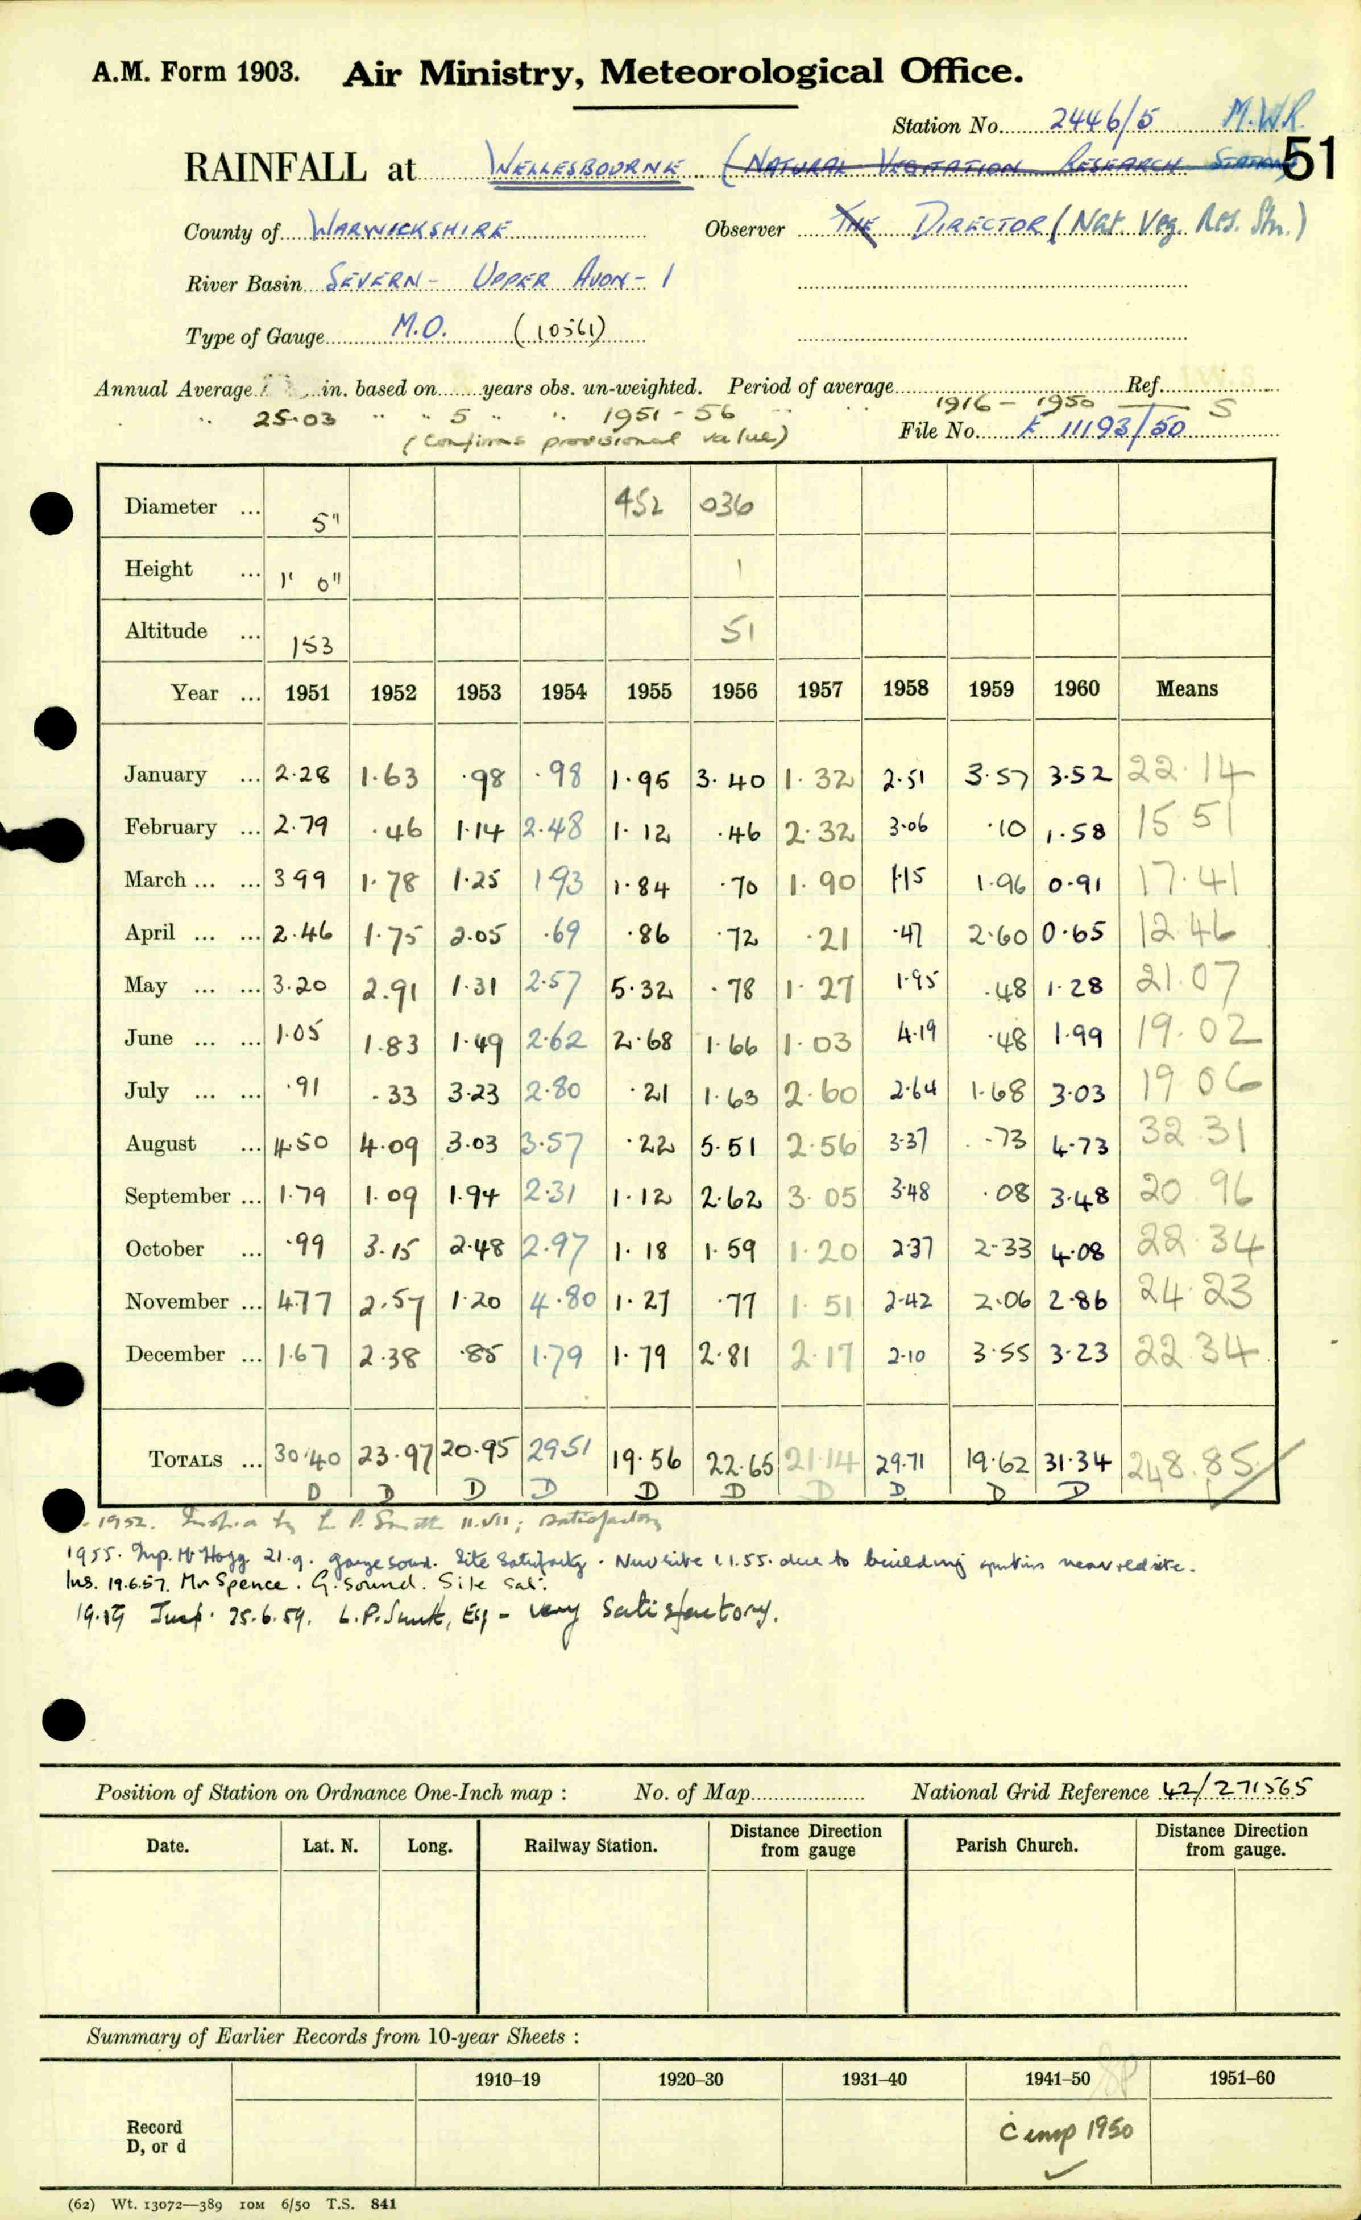 A.M. Form 1903. Air Ministry, Meteorological Office.
Station No. 2446/5 M.W.R.
RAINFALL at WELLESBOURNE (NATURAL VEGITATION RESEARCH STATION) 51
County of WARWICKSHIRE Observer THE DIRECTOR (Nat. Veg. Res. Stn.)
River Basin SEVERN - UPPER AVON - 1
Type of Gauge M.O. (10561)
Annual Average in. based on years obs. un-weighted. Period of average Ref.
" 25.03 " " 5 " " 1951-56 " " 1916-1950 S
(Confirms provisional value) File No. F 11193/50
Diameter ... 5" 452 036
Height ... 1' 0" 1
Altitude ... 153 51
Year ... 1951 1952 1953 1954 1955 1956 1957 1958 1959 1960 Means
January ... 2.28 1.63 .98 .98 1.95 3.40 1.32 2.51 3.57 3.52 22.14
February ... 2.79 .46 1.14 2.48 1.12 .46 2.32 3.06 .10 1.58 15 51
March ... ... 3 99 1.78 1.25 1 93 1.84 .70 1.90 1.15 1.96 0.91 17.41
April ... ... 2.46 1.75 2.05 .69 .86 .72 .21 .47 2.60 0.65 12.46
May ... ... 3.20 2.91 1.31 2.57 5.32 .78 1.27 1.95 .48 1.28 21.07
June ... ... 1.05 1.83 1.49 2.62 2.68 1.66 1.03 4.19 .48 1.99 19.02
July ... ... .91 .33 3.23 2.80 .21 1.63 2.60 2.64 1.68 3.03 19 06
August ... 4.50 4.09 3.03 3.57 .22 5.51 2.56 3.37 .73 4.73 32.31
September ... 1.79 1.09 1.94 2.31 1.12 2.62 3.05 3.48 .08 3.48 20 96
October ... .99 3.15 2.48 2.97 1.18 1.59 1.20 2.37 2.33 4.08 22.34
November ... 4.77 2.57 1.20 4.80 1.27 .77 1.51 2.42 2.06 2.86 24.23
December ... 1.67 2.38 .85 1.79 1.79 2.81 2.17 2.10 3.55 3.23 22.34
TOTALS ... 30.40 23.97 20.95 29.51 19.56 22.65 21.14 29.71 19.62 31.34 248.85
D D D D D D D D D D
1952. by L. P. Smith 11.VII; satisfactory
1955. Insp. Mr Hogg 21.9. gauge sound. Site Satisfactory. New site 1.1.55. due to building near old site.
Ins. 19.6.57. Mr Spence. G. sound. Site Sat.
19.59 Insp. 25.6.59. L.P. Smith, Esq - very satisfactory.
Position of Station on Ordnance One-Inch map : No. of Map National Grid Reference 42/271565
Date. Lat. N. Long. Railway Station. Distance from gauge Direction Parish Church. Distance from gauge. Direction
Summary of Earlier Records from 10-year Sheets :
1910–19 1920–30 1931–40 1941–50 1951–60
Record
D, or d
Comp 1950
(62) Wt. 13072—389 10M 6/50 T.S. 841